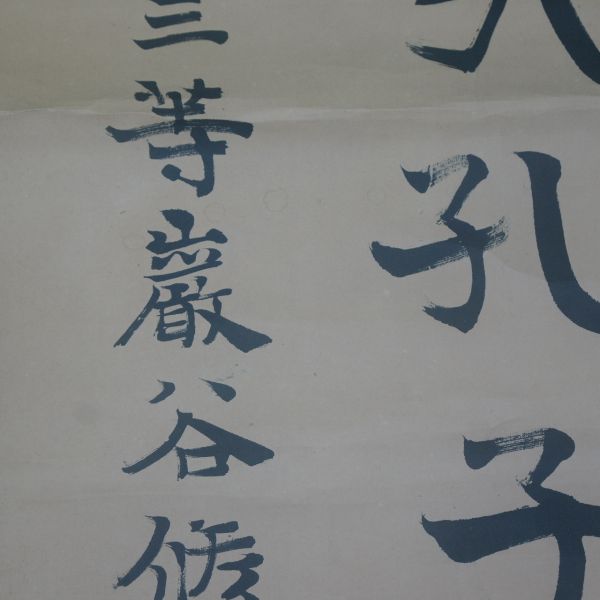 孔子
三等巖谷修